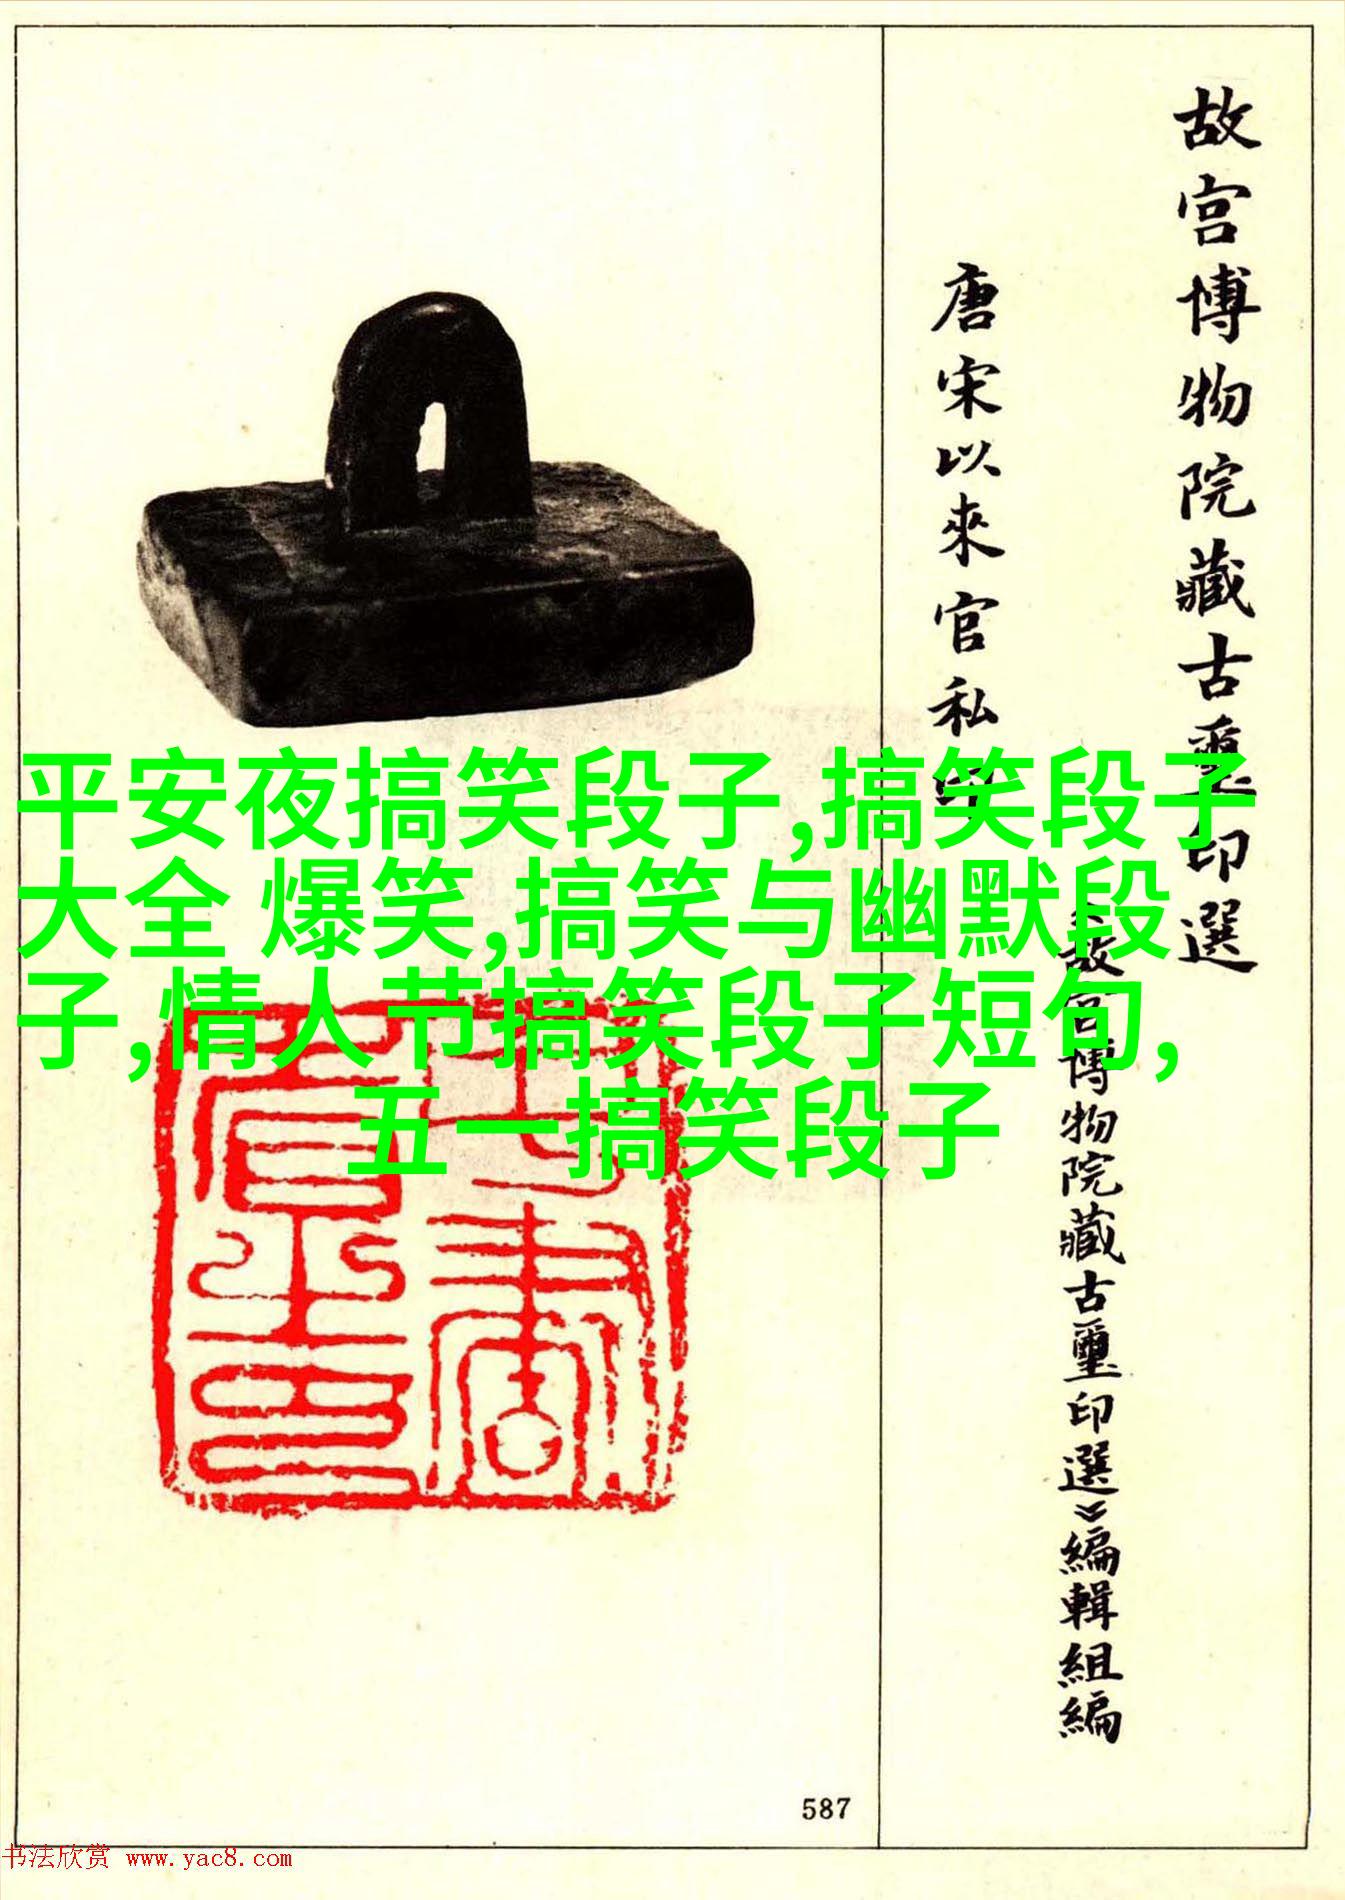 故宫博物院藏古璽印選
《故宫博物院藏古璽印選》編輯組編
唐宋以來官私印
平安夜搞笑段子,搞笑段子
大全 爆笑,搞笑与幽默段
子,情人节搞笑段子短句,
五一搞笑段子
587
书法欣赏 www.yac8.com